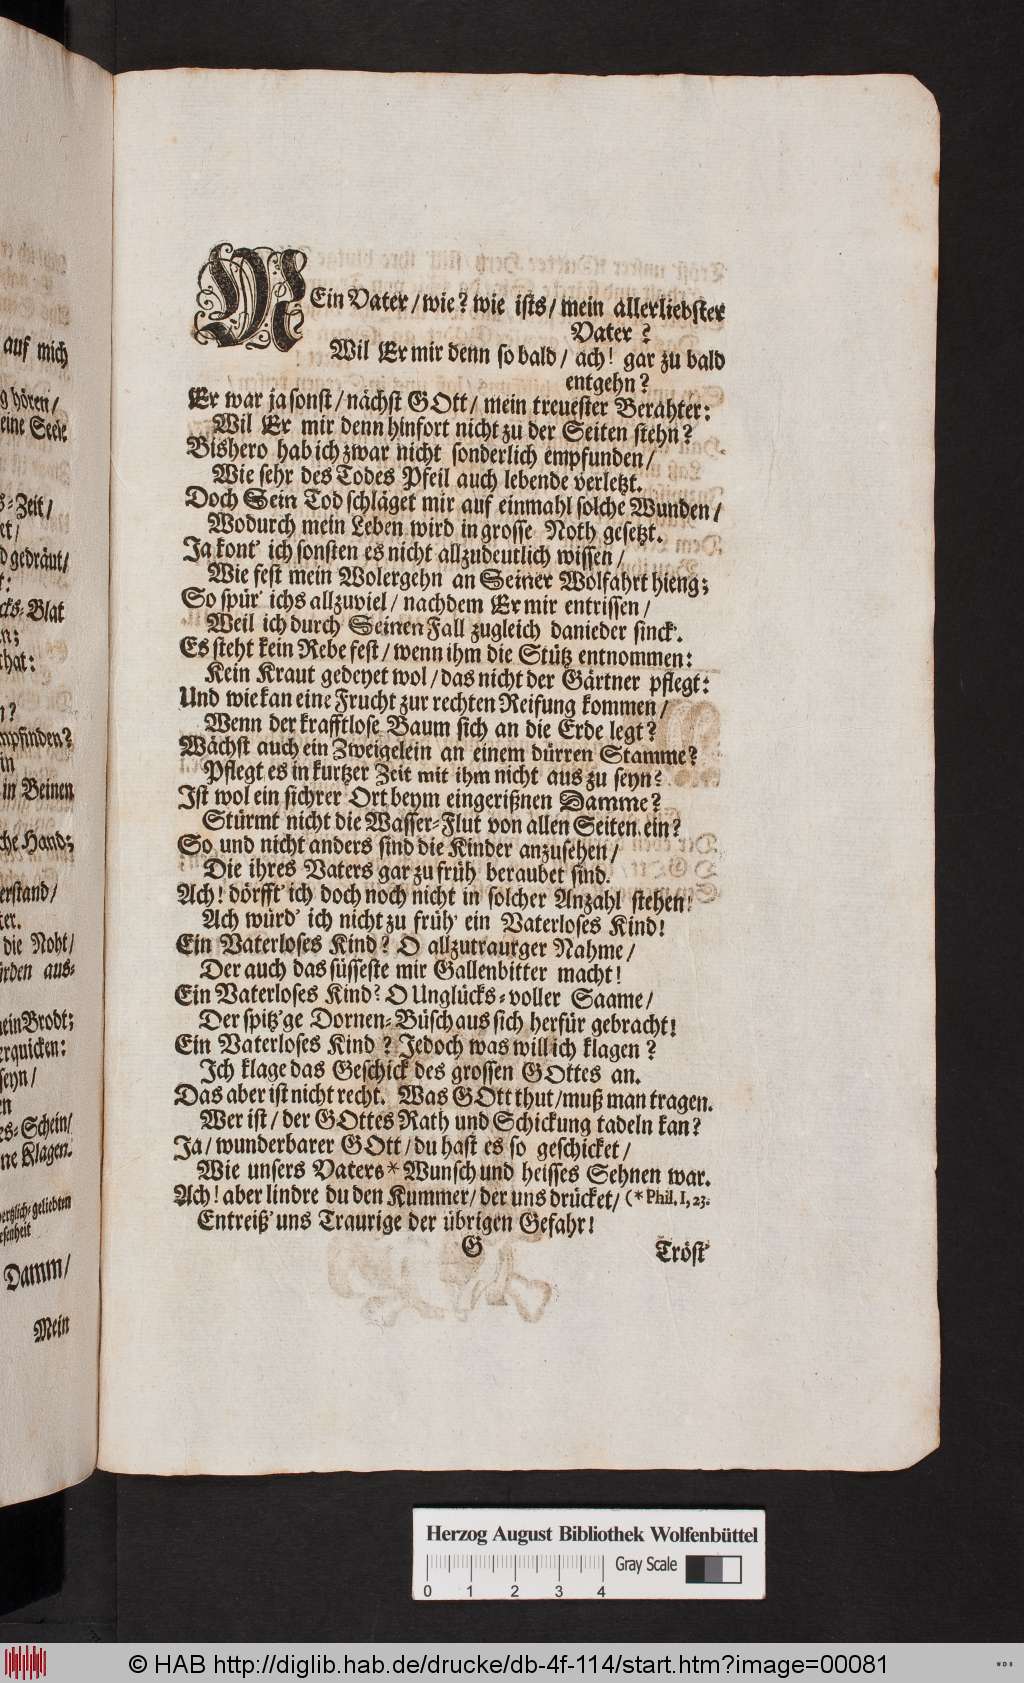 auf mich
g hören/
eine Seele
s-Zeit/
et/
d gedräut/
t:
cks-Blat
n;
that:
n?
mpfinden?
in
in Beinen
che Hand;
erstand/
ker.
die Noht/
ürden aus-
mein Brodt;
erquicken:
seyn/
en
es-Schein/
ne Klagen.
hertzlich-geliebten
esenheit
Damm/
Mein
MEin Vater/wie? wie ists/mein allerliebster
Vater?
Wil Er mir denn so bald/ ach! gar zu bald
entgehn?
Er war ja sonst/nächst GOtt/ mein treuester Berahter:
Wil Er mir denn hinfort nicht zu der Seiten stehn?
Bishero hab ich zwar nicht sonderlich empfunden/
Wie sehr des Todes Pfeil auch lebende verletzt.
Doch Sein Tod schläget mir auf einmahl solche Wunden/
Wodurch mein Leben wird in grosse Noth gesetzt.
Ja kont' ich sonsten es nicht allzudeutlich wissen/
Wie fest mein Wolergehn an Seiner Wolfahrt hieng;
So spür' ichs allzuviel/ nachdem Er mir entrissen/
Weil ich durch Seinen Fall zugleich danieder sinck'.
Es steht kein Rebe fest/wenn ihm die Stütz entnommen:
Kein Kraut gedeyet wol/das nicht der Gärtner pflegt:
Und wie kan eine Frucht zur rechten Reifung kommen/
Wenn der krafftlose Baum sich an die Erde legt?
Wächst auch ein Zweigelein an einem dürren Stamme?
Pflegt es in kurtzer Zeit mit ihm nicht aus zu seyn?
Ist wol ein sichrer Ort beym eingerißnen Damme?
Stürmt nicht die Wasser-Flut von allen Seiten ein?
So und nicht anders sind die Kinder anzusehen/
Die ihres Vaters gar zu früh beraubet sind.
Ach! dörfft' ich doch noch nicht in solcher Anzahl stehen!
Ach würd' ich nicht zu früh' ein Vaterloses Kind!
Ein Vaterloses Kind? O allzutraurger Nahme/
Der auch das süsseste mir Gallenbitter macht!
Ein Vaterloses Kind? O Unglücks-voller Saame/
Der spitz'ge Dornen-Büsch aus sich herfür gebracht!
Ein Vaterloses Kind? Jedoch was will ich klagen?
Ich klage das Geschick des grossen GOttes an.
Das aber ist nicht recht. Was GOtt thut/muß man tragen.
Wer ist/ der GOttes Rath und Schickung tadeln kan?
Ja/wunderbarer GOtt/du hast es so geschicket/
Wie unsers Vaters * Wunsch und heisses Sehnen war.
Ach! aber lindre du den Kummer/der uns drücket/ (* Phil. I, 23.
Entreiß' uns Traurige der übrigen Gefahr!
G
Tröst'
Herzog August Bibliothek Wolfenbüttel
Gray Scale
0 1 2 3 4
© HAB http://diglib.hab.de/drucke/db-4f-114/start.htm?image=00081